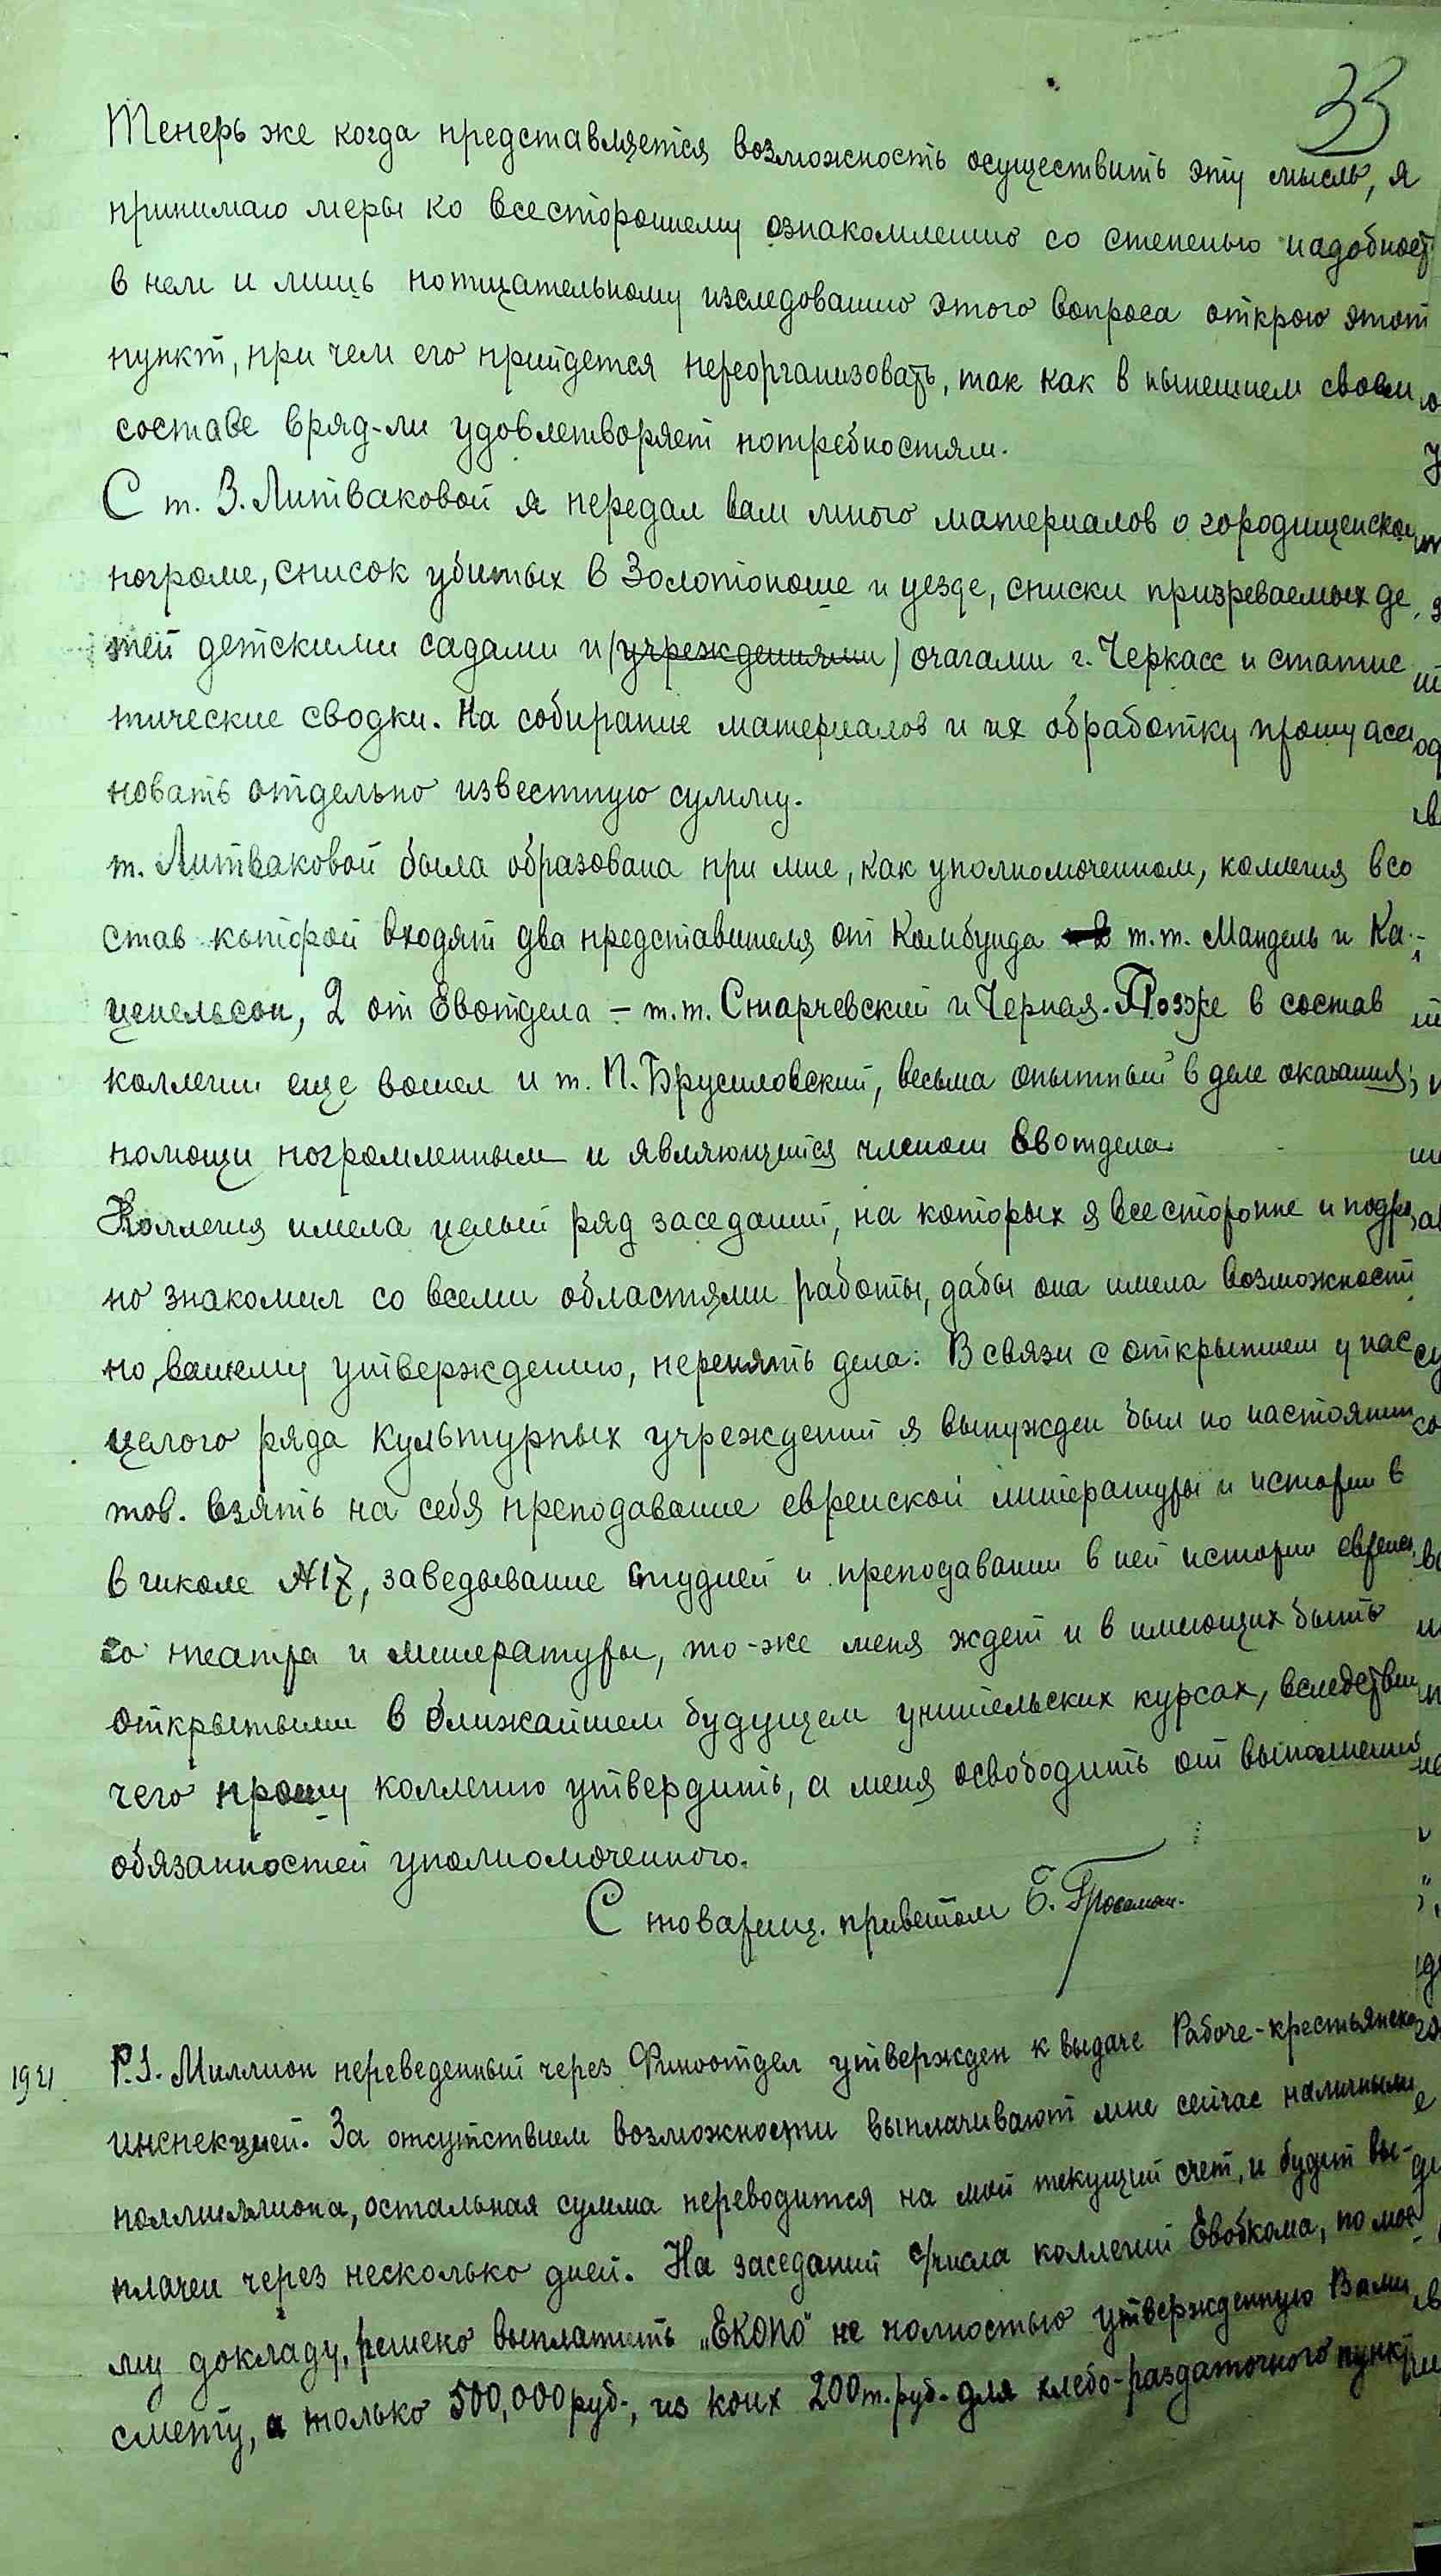 33
Теперь же когда представляется возможность осуществить эту мысль, я
принимаю меры ко всестороннему ознакомлению со степенью надобност
в нем и лишь потщательному изследованию этого вопроса открою этот
пункт, при чем его прийдется переорганизовать, так как в нынешнем своем
составе вряд-ли удовлетворяет потребностям.
С т. З. Литваковой я передал вам много материалов о городищенском
погроме, список убитых в Золотоноше и уезде, списки призреваемых де
тей детскими садами и (учреждениями) очагами г. Черкасс и статис
тические сводки. На собирание материалов и их обработку прошу асси
новать отдельно известную сумму.
т. Литваковой была образована при мне, как уполномоченном, коллегия всо
став которой входят два представителя от Комбунда т.т. Мандель и Ка-
ценельсон, 2 от Евотдела – т.т. Старчевский и Черная. Позже в состав
коллегии еще вошел и т. П. Брусиловский, весьма опытный в деле оказания
помощи погромленным и являющийся членом Евотдела.
Коллегия имела целый ряд заседаний, на которых я всесторонне и подро
но знакомил со всеми областями работы, дабы она имела возможность
по, вашему утверждению, перенять дела. В связи с открытием у нас
целого ряда культурных учреждений я вынужден был по настоянию
тов. взять на себя преподавание еврейской литературы и истории в
в школе №17, заведывание студией и преподавании в ней истории еврейск
го театра и литературы, то-же меня ждет и в имеющих быть
открытыми в ближайшем будущем учительских курсах, вследствии
чего прошу коллегию утвердить, а меня освободить от выполнения
обязанностей уполномоченного.
С товарищ. приветом Б. Гроссман.
1921
P.S. Миллион переведенный через Финотдел утвержден к выдаче Рабоче-крестьянско
инспекцией. За отсутствием возможности выплачивают мне сейчас наличными
полмиллиона, остальная сумма переводится на мой текущий счет, и будет вы-
плачен через несколько дней. На заседаний с/числа коллегии Евобкома, по мое
му докладу, решено выплатить „ЕКОПО" не полностью утвержденную Вами
смету, а только 500,000 руб., из коих 200 т. руб. для хлебо-раздаточного пункт